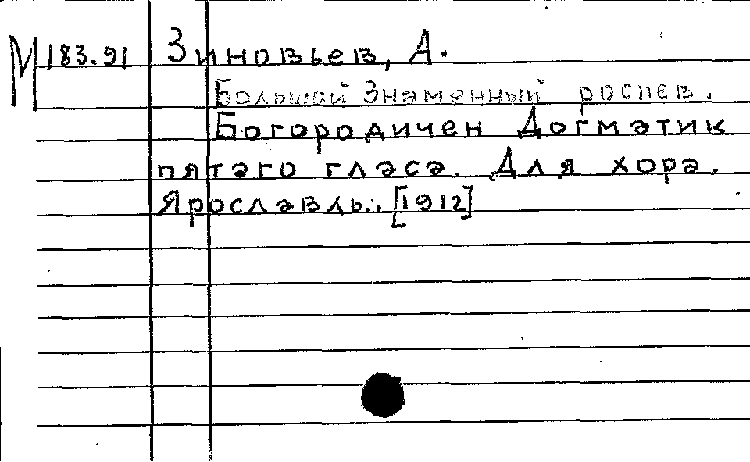 М 183.91 Зиновьев, А.
Большой Знаменный роспев.
Богородичен Догматик
пятаго гласа. Для хора.
Ярославль. [1912]